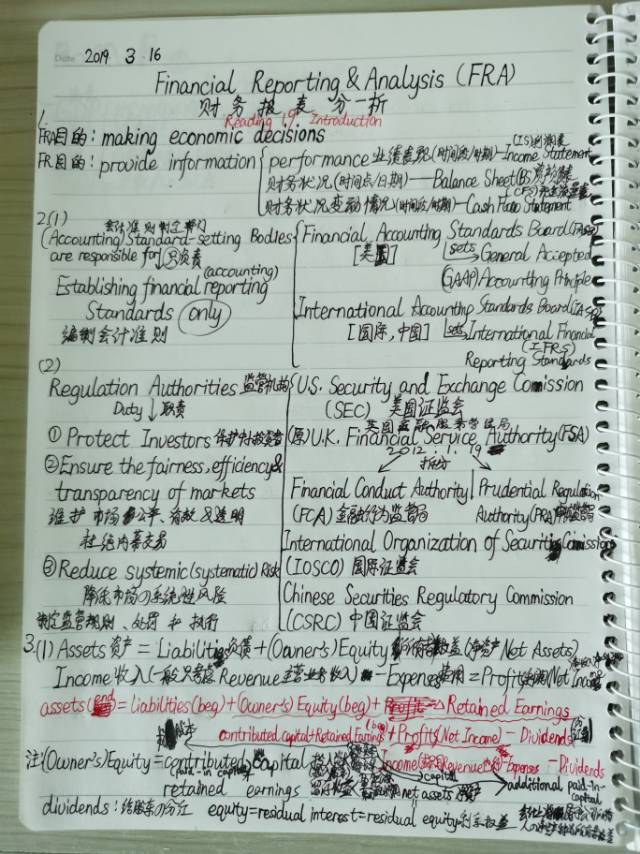 Date 2019 3 · 16
Financial Reporting & Analysis (FRA)
财务报表分析
Reading 19 Introduction
1.
FRA目的: making economic decisions
FR目的: provide information
performance 业绩表现(时间段/时期)—Income Statement (IS)利润表
财务状况(时间点/日期)—Balance Sheet(BS)
财务状况变动情况(时间段/时期)—Cash Flow Statement (CFS)
2.(1)
会计准则制定部门
(Accounting) Standard-setting Bodies
are responsible for ↓只负责
(accounting)
Establishing financial reporting
Standards only
编制会计准则
Financial Accounting Standards Board(FASB)
[美国] sets General Accepted
(GAAP) Accounting Principle
International Accounting Standards Board(IASB)
[国际,中国] sets International Financial
(IFRS)
Reporting Standards
(2)
Regulation Authorities 监管机构
Duty ↓ 职责
① Protect Investors 保护投资者
② Ensure the fairness, efficiency &
transparency of markets
维护市场公平、有效及透明
杜绝内幕交易
③ Reduce systemic (systematic) Risk
降低市场の系统性风险
制定监管规则、处罚和执行
U.S. Security and Exchange Commission
(SEC) 美国证监会
英国金融服务管理局
(原) U.K. Financial Service Authority (FSA)
2012.1.19
拆分
Financial Conduct Authority
(FCA) 金融行为监管局
Prudential Regulation
Authority (PRA)
International Organization of Securities Commission
(IOSCO) 国际证监会
Chinese Securities Regulatory Commission
(CSRC) 中国证监会
3.(1) Assets 资产 = Liabilities 负债 + (Owner's) Equity (净资产 Net Assets)
Income 收入 (一般只看 Revenue 主营业务收入) - Expenses 费用 = Profit (Net Income)
assets (end) = Liabilities (beg) + (Owner's) Equity (beg) + Retained Earnings
contributed capital + Retained Earning (beg) + Profit (Net Income) - Dividends
注: (Owner's) Equity = contributed capital
Income Revenue - Expenses - Dividends
(paid-in capital)
capital
additional paid-in-capital
retained earnings
net assets
dividends: 给股东の分红 equity = residual interest = residual equity 剩余权益